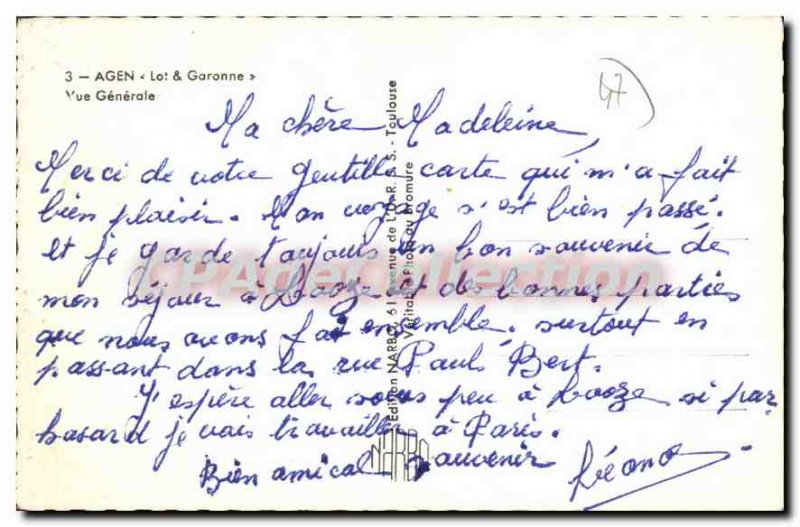 3 — AGEN « Lot & Garonne »
Vue Générale
47
Ma chère Madeleine,
Merci de votre gentille carte qui m'a fait
bien plaisir. Mon voyage s'est bien passé.
et je garde toujours un bon souvenir de
mon séjour à Looze et des bonnes parties
que nous avons fait ensemble, surtout en
passant dans la rue Paul Bert.
J'espère aller sous peu à Looze si par
hasard je vais travailler à Paris.
Bien amical souvenir
Édition NARBO, 61, avenue de L'U.R.S.S. - Toulouse
Véritable Photo au Bromure
NARBO
CPArteCollection